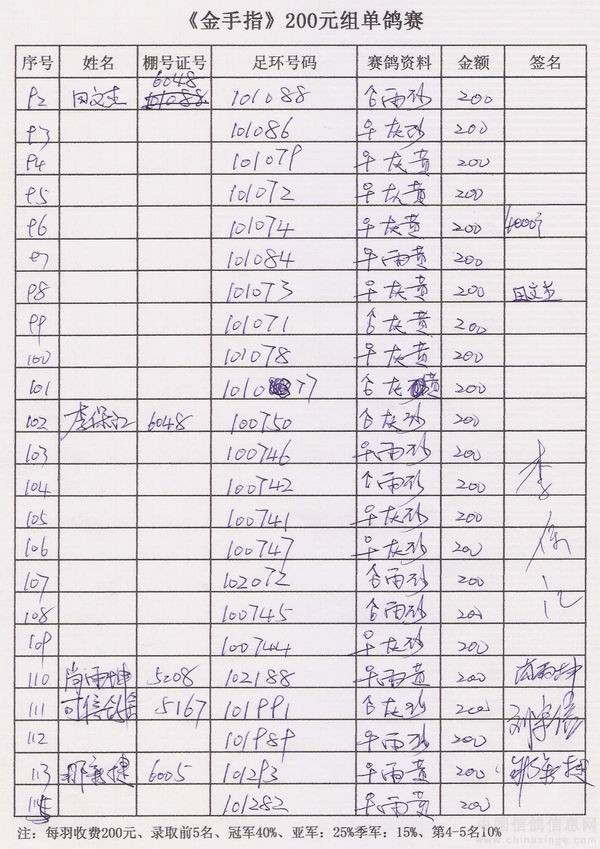 《金手指》200元组单鸽赛
序号 姓名 棚号证号 足环号码 赛鸽资料 金额 签名
92 田文生 6048 101088 合雨砂 200
93 101086 早灰砂 200
94 101079 早灰黄 200
95 101072 早灰黄 200
96 101074 早灰黄 200
97 101084 早雨黄 200
98 101073 早灰黄 200
99 101071 合灰黄 200
100 101078 早灰黄 200
101 1010 77 合灰黄 200
102 李保江 6048 100750 合灰砂 200
103 100746 早雨砂 200
104 100742 合雨砂 200 李
105 100741 早灰砂 200
106 100747 早灰砂 200 保
107 102072 合雨砂 200
108 100745 合雨砂 200 江
109 100744 早灰砂 200
110 5208 102188 早雨黄 200
111 5167 101991 合灰砂 200
112 101989 早雨砂 200
113 6005 101293 早雨黄 200
101282 早雨黄 200
注：每羽收费200元、录取前5名、冠军40%、亚军：25%季军：15%、第4-5名10%
中国信鸽信息网
www.chinaxinge.com